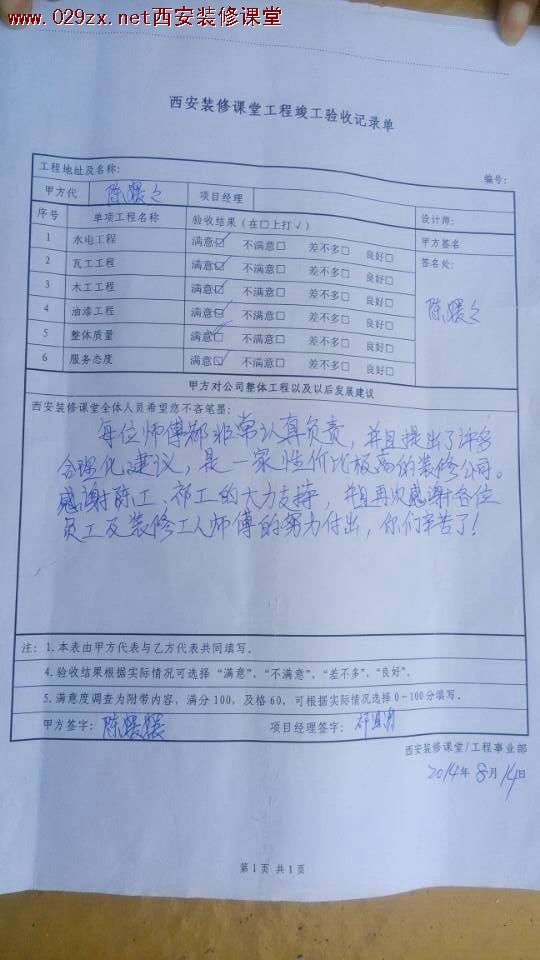 www.029zx.net西安装修课堂
西安装修课堂工程竣工验收记录单
工程地址及名称: 编号:
甲方代 陈 项目经理
序号 单项工程名称 验收结果(在□上打√) 设计师:
1 水电工程 满意☑ 不满意□ 差不多□ 良好□ 甲方签名
2 瓦工工程 满意☑ 不满意□ 差不多□ 良好□ 签名处:
3 木工工程 满意☑ 不满意□ 差不多□ 良好□
4 油漆工程 满意☑ 不满意□ 差不多□ 良好□ 陈
5 整体质量 满意☑ 不满意□ 差不多□ 良好□
6 服务态度 满意☑ 不满意□ 差不多□ 良好□
甲方对公司整体工程以及以后发展建议
西安装修课堂全体人员希望您不吝笔墨:
每位师傅都非常认真负责,并且提出了许多
合理化建议,是一家性价比极高的装修公司。
感谢陈工、祁工的大力支持,并且再次感谢各位
员工及装修工人师傅的努力付出,你们辛苦了!
注: 1.本表由甲方代表与乙方代表共同填写。
4.验收结果根据实际情况可选择“满意”,“不满意”,“差不多”,“良好”。
5.满意度调查为附带内容,满分100,及格60,可根据实际情况选择0-100分填写。
甲方签字: 陈 项目经理签字: 祁
西安装修课堂/工程事业部
2014年8月14日
第1页 共1页